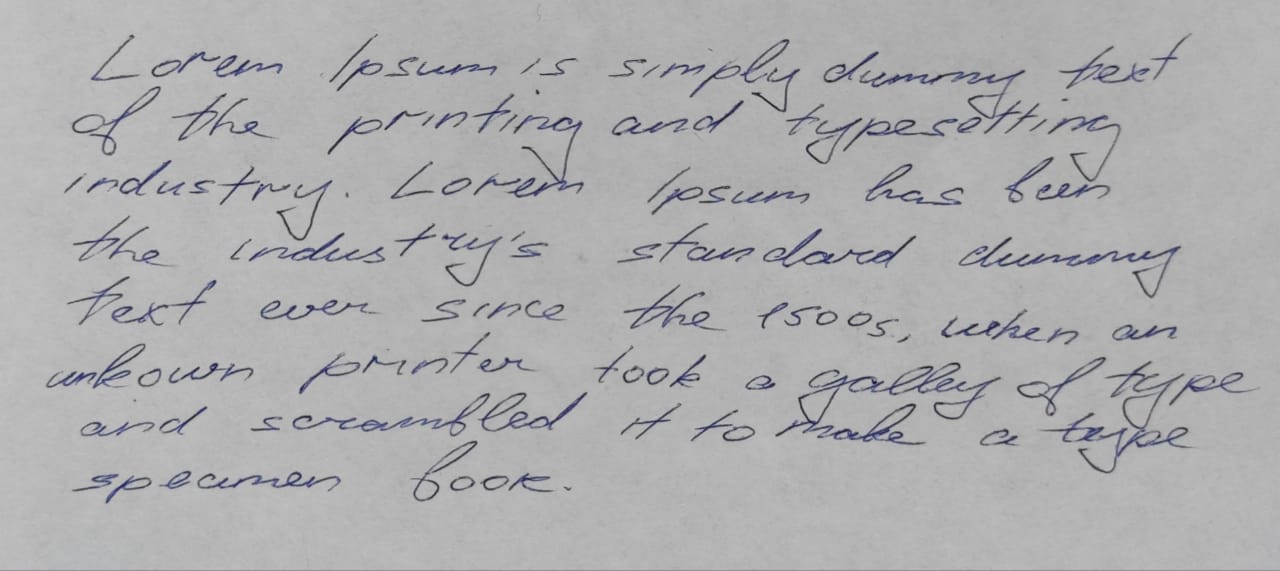 Lorem Ipsum is simply dummy text
of the printing and typesetting
industry. Lorem Ipsum has been
the industry's standard dummy
text ever since the 1500s, when an
unkown printer took a galley of type
and scrambled it to make a type
specimen book.